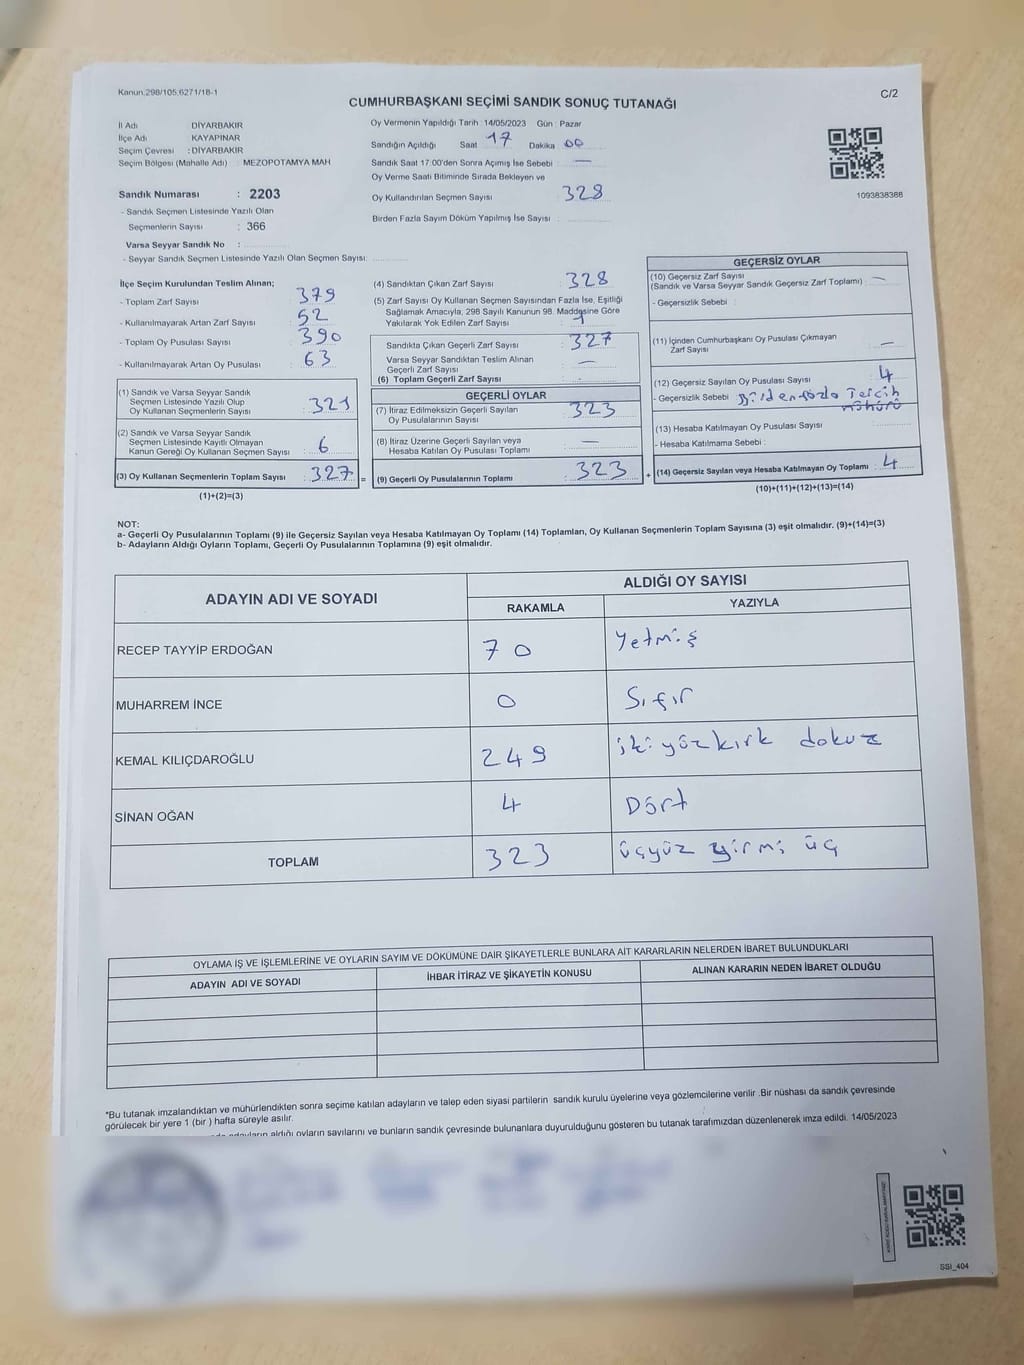 Kanun.298/105,6271/18-1
C/2
CUMHURBAŞKANI SEÇİMİ SANDIK SONUÇ TUTANAĞI
İl Adı DİYARBAKIR
İlçe Adı KAYAPINAR
Seçim Çevresi : DİYARBAKIR
Seçim Bölgesi (Mahalle Adı) : MEZOPOTAMYA MAH
Sandık Numarası : 2203
- Sandık Seçmen Listesinde Yazılı Olan
Seçmenlerin Sayısı : 366
Varsa Seyyar Sandık No :
- Seyyar Sandık Seçmen Listesinde Yazılı Olan Seçmen Sayısı:
Oy Vermenin Yapıldığı Tarih : 14/05/2023 Gün : Pazar
Sandığın Açıldığı Saat 17 Dakika 00
Sandık Saat 17:00'den Sonra Açımış İse Sebebi : —
Oy Verme Saati Bitiminde Sırada Bekleyen ve
Oy Kullandırılan Seçmen Sayısı 328
Birden Fazla Sayım Döküm Yapılmış İse Sayısı :
1093838388
İlçe Seçim Kurulundan Teslim Alınan;
- Toplam Zarf Sayısı : 379
- Kullanılmayarak Artan Zarf Sayısı : 52
- Toplam Oy Pusulası Sayısı : 390
- Kullanılmayarak Artan Oy Pusulası : 63
(1) Sandık ve Varsa Seyyar Sandık
Seçmen Listesinde Yazılı Olup
Oy Kullanan Seçmenlerin Sayısı : 321
(2) Sandık ve Varsa Seyyar Sandık
Seçmen Listesinde Kayıtlı Olmayan
Kanun Gereği Oy Kullanan Seçmen Sayısı : 6
(3) Oy Kullanan Seçmenlerin Toplam Sayısı : 327 =
(1)+(2)=(3)
(4) Sandıktan Çıkan Zarf Sayısı : 328
(5) Zarf Sayısı Oy Kullanan Seçmen Sayısından Fazla İse, Eşitliği
Sağlamak Amacıyla, 298 Sayılı Kanunun 98. Maddesine Göre
Yakılarak Yok Edilen Zarf Sayısı : 1
Sandıkta Çıkan Geçerli Zarf Sayısı : 327
Varsa Seyyar Sandıktan Teslim Alınan
Geçerli Zarf Sayısı : —
(6) Toplam Geçerli Zarf Sayısı :
GEÇERLİ OYLAR
(7) İtiraz Edilmeksizin Geçerli Sayılan
Oy Pusulasının Sayısı : 323
(8) İtiraz Üzerine Geçerli Sayılan veya
Hesaba Katılan Oy Pusulası Toplamı : —
(9) Geçerli Oy Pusulalarının Toplamı : 323 +
GEÇERSİZ OYLAR
(10) Geçersiz Zarf Sayısı
(Sandık ve Varsa Seyyar Sandık Geçersiz Zarf Toplamı) : —
- Geçersizlik Sebebi :
(11) İçinden Cumhurbaşkanı Oy Pusulası Çıkmayan
Zarf Sayısı : —
(12) Geçersiz Sayılan Oy Pusulası Sayısı : 4
- Geçersizlik Sebebi : Bir'den fazla Tercih
Mührü
(13) Hesaba Katılmayan Oy Pusulası Sayısı :
- Hesaba Katılmama Sebebi :
(14) Geçersiz Sayılan veya Hesaba Katılmayan Oy Toplamı : 4
(10)+(11)+(12)+(13)=(14)
NOT:
a- Geçerli Oy Pusulalarının Toplamı (9) ile Geçersiz Sayılan veya Hesaba Katılmayan Oy Toplamı (14) Toplamları, Oy Kullanan Seçmenlerin Toplam Sayısına (3) eşit olmalıdır. (9)+(14)=(3)
b- Adayların Aldığı Oyların Toplamı, Geçerli Oy Pusulalarının Toplamına (9) eşit olmalıdır.
ADAYIN ADI VE SOYADI
ALDIĞI OY SAYISI
RAKAMLA YAZIYLA
RECEP TAYYİP ERDOĞAN 70 Yetmiş
MUHARREM İNCE 0 Sıfır
KEMAL KILIÇDAROĞLU 249 iki yüz kırk dokuz
SİNAN OĞAN 4 Dört
TOPLAM 323 üçyüz yirmi üç
OYLAMA İŞ VE İŞLEMLERİNE VE OYLARIN SAYIM VE DÖKÜMÜNE DAİR ŞİKAYETLERLE BUNLARA AİT KARARLARIN NELERDEN İBARET BULUNDUKLARI
ADAYIN ADI VE SOYADI İHBAR İTİRAZ VE ŞİKAYETİN KONUSU ALINAN KARARIN NEDEN İBARET OLDUĞU
*Bu tutanak imzalandıktan ve mühürlendikten sonra seçime katılan adayların ve talep eden siyasi partilerin sandık kurulu üyelerine veya gözlemcilerine verilir .Bir nüshası da sandık çevresinde
görülecek bir yere 1 (bir ) hafta süreyle asılır.
aldığı oyların sayılarını ve bunların sandık çevresinde bulunanlara duyurulduğunu gösteren bu tutanak tarafımızdan düzenlenerek imza edildi. 14/05/2023
SSI_404